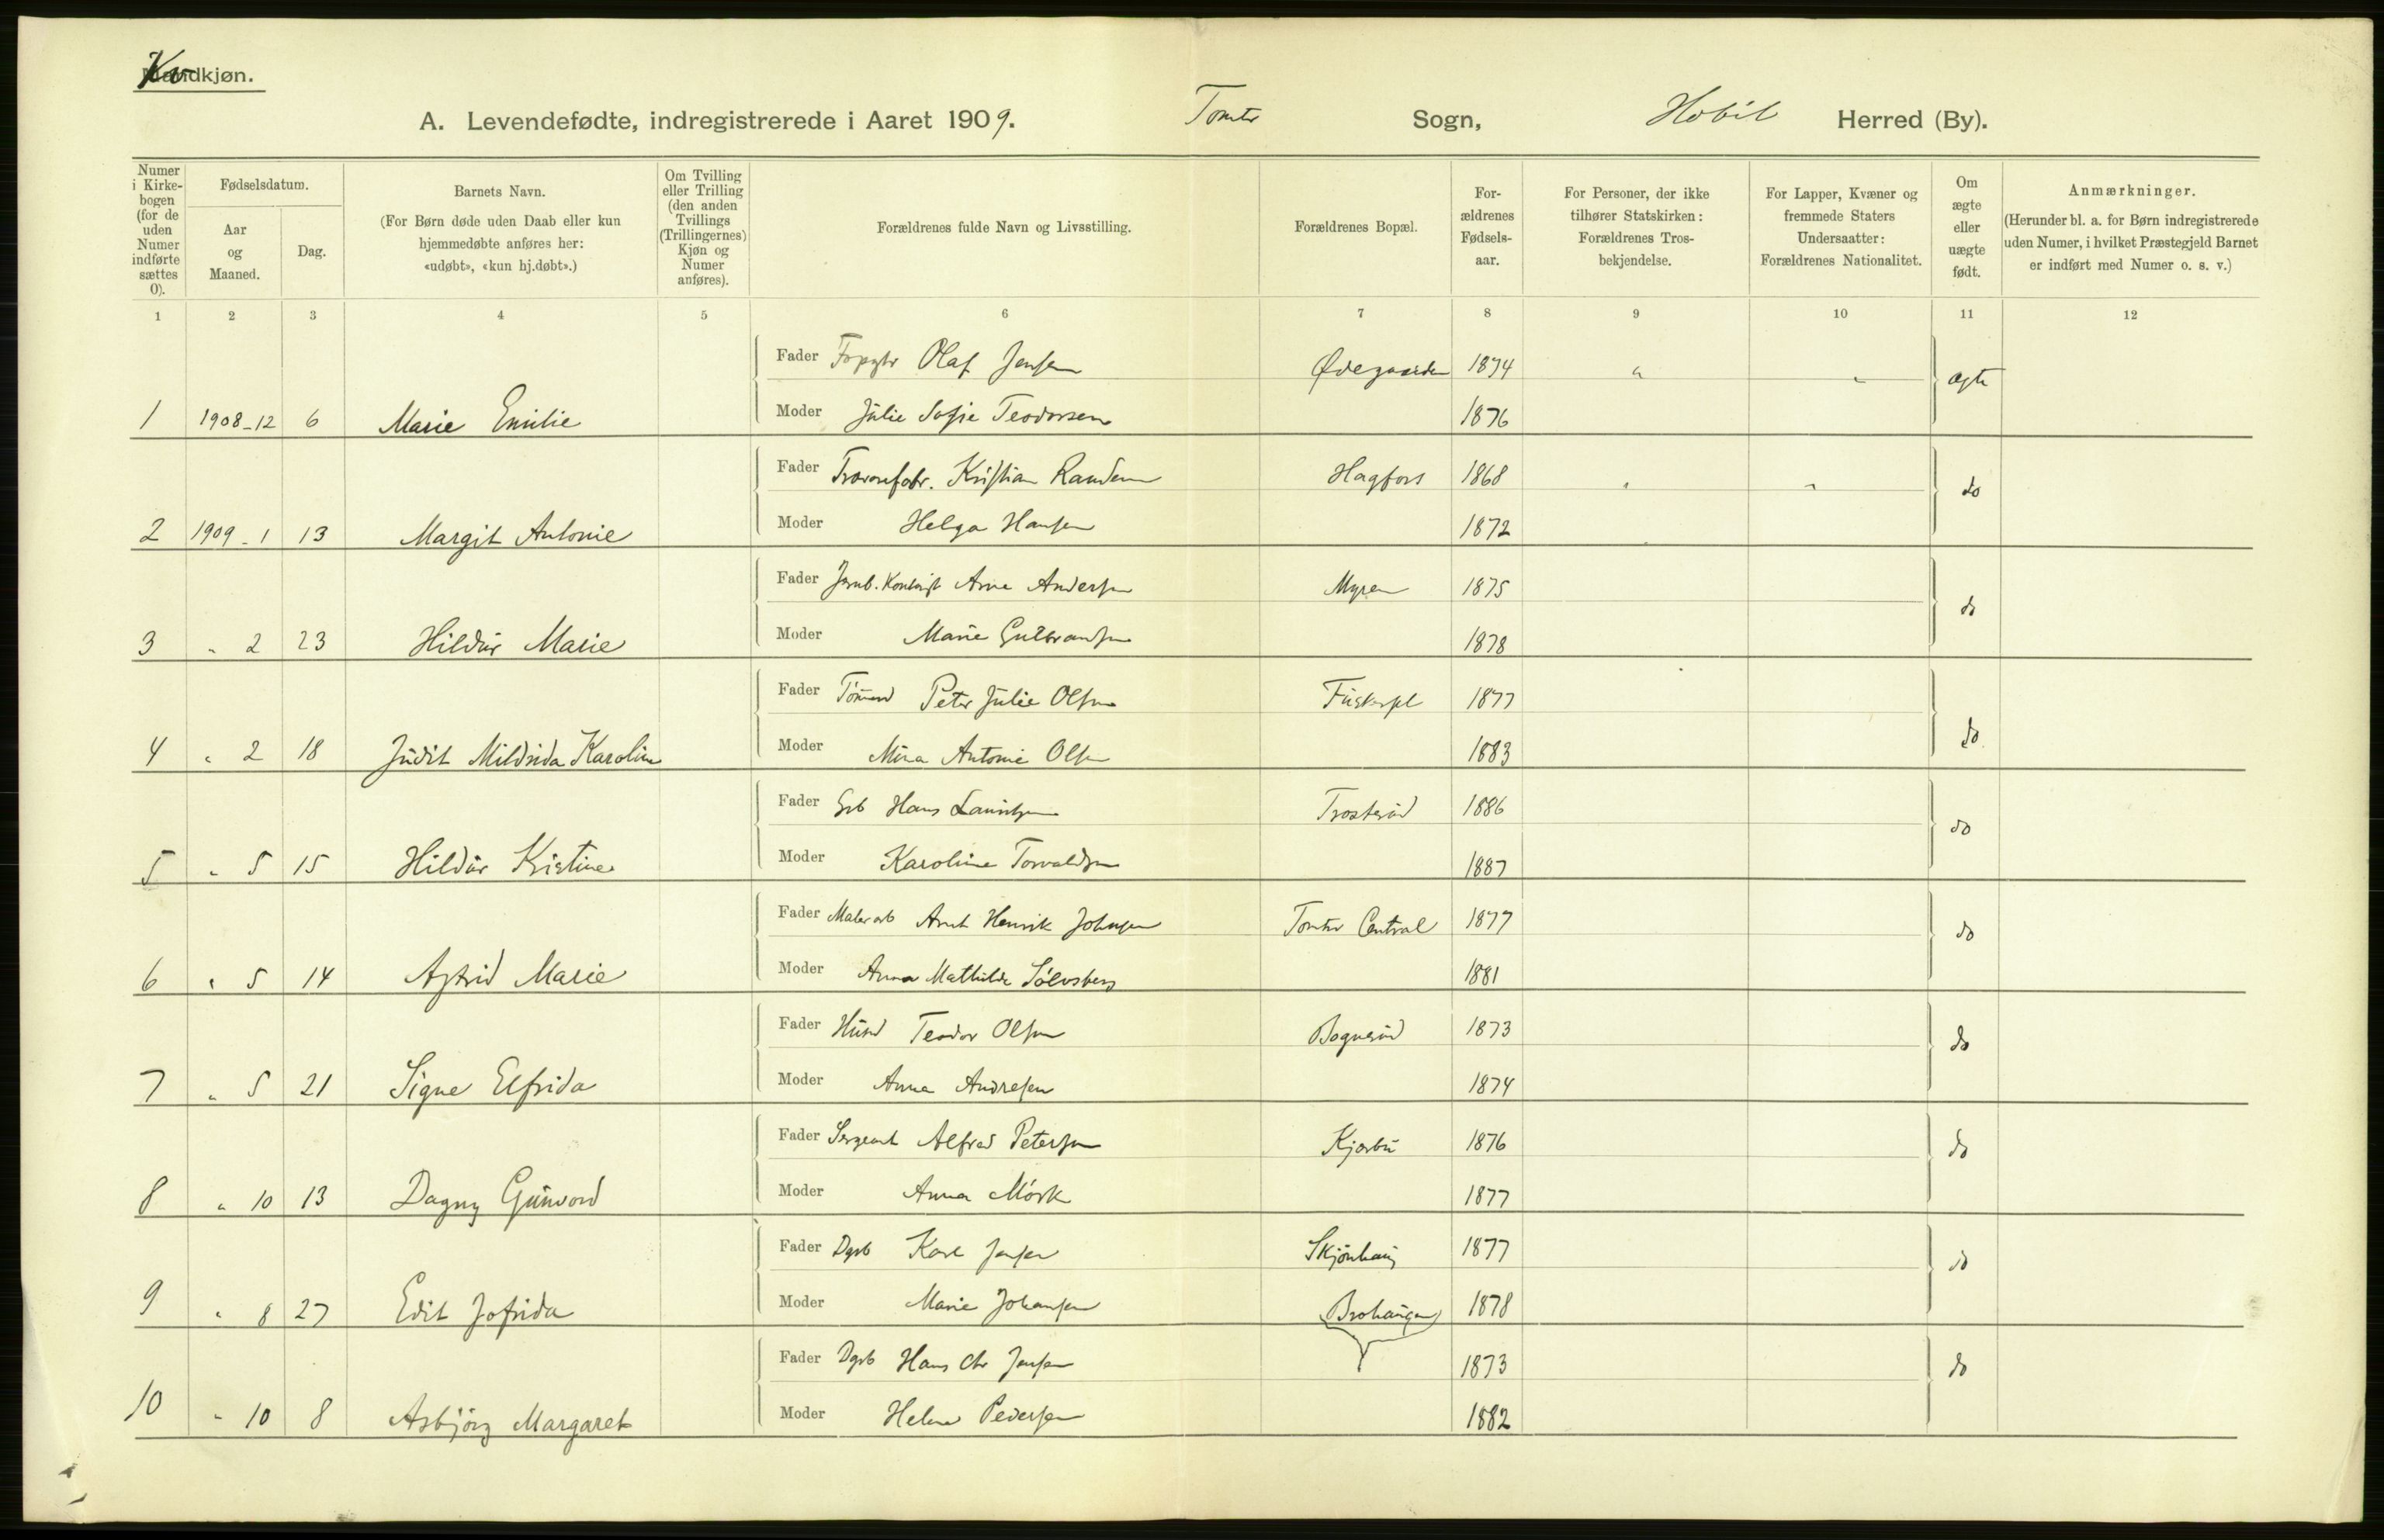 Kvindkjøn.
A. Levendefødte, indregistrerede i Aaret 1909. Tomter Sogn, Hobøl Herred (By).
Numer i Kirkebogen (for de uden Numer indførte sættes 0).
Fødselsdatum.
Aar og Maaned.
Dag.
Barnets Navn.
(For Børn døde uden Daab eller kun hjemmedøbte anføres her: «udøbt», «kun hj.døbt».)
Om Tvilling eller Trilling (den anden Tvillings (Trillingernes) Kjøn og Numer anføres).
Forældrenes fulde Navn og Livsstilling.
Forældrenes Bopæl.
Forældrenes Fødselsaar.
For Personer, der ikke tilhører Statskirken: Forældrenes Trosbekjendelse.
For Lapper, Kvæner og fremmede Staters Undersaatter: Forældrenes Nationalitet.
Om ægte eller uægte født.
Anmærkninger.
(Herunder bl. a. for Børn indregistrerede uden Numer, i hvilket Præstegjeld Barnet er indført med Numer o. s. v.)
1 2 3 4 5 6 7 8 9 10 11 12
Fader Olaf Jensen Ødegaarden 1874 " " ægte
1 1908-12 6 Marie Emilie Moder Julie Sofie Teodorsen 1876
Fader Kristian Randem Hagfors 1868 " " do
2 1909-1 13 Margit Antonie Moder Helga Hansen 1872
Fader Arne Andersen Myren 1875 do
3 " 2 23 Hildur Marie Moder Marie Gulbrandsen 1878
Fader Peter Julie Olsen 1877 do
4 " 2 18 Judit Mildrida Karoline Moder Mina Antonie Olsen 1883
Fader Hans Lauritzen Trosterud 1886 do
5 " 5 15 Hildur Kristine Moder Karoline Torvaldsen 1887
Fader Malerarb Arnt Henrik Johnsen Tomter Central 1877 do
6 " 5 14 Astrid Marie Moder Anna Mathilde Sølvsberg 1881
Fader Husmd Teodor Olsen Bognerud 1873 do
7 " 5 21 Signe Elfrida Moder Anna Andresen 1874
Fader Sergeant Alfred Petersen Kjærbu 1876 do
8 " 10 13 Dagny Gunvord Moder Anna Mörk 1877
Fader Dgrb Karl Jensen Skjönhaug 1877 do
9 " 8 27 Edit Jofrida Moder Marie Johansen Brohaugen 1878
Fader Dgrb Hans Chr Jensen 1873 do
10 " 10 8 Asbjörg Margaret Moder Helene Pedersen 1882